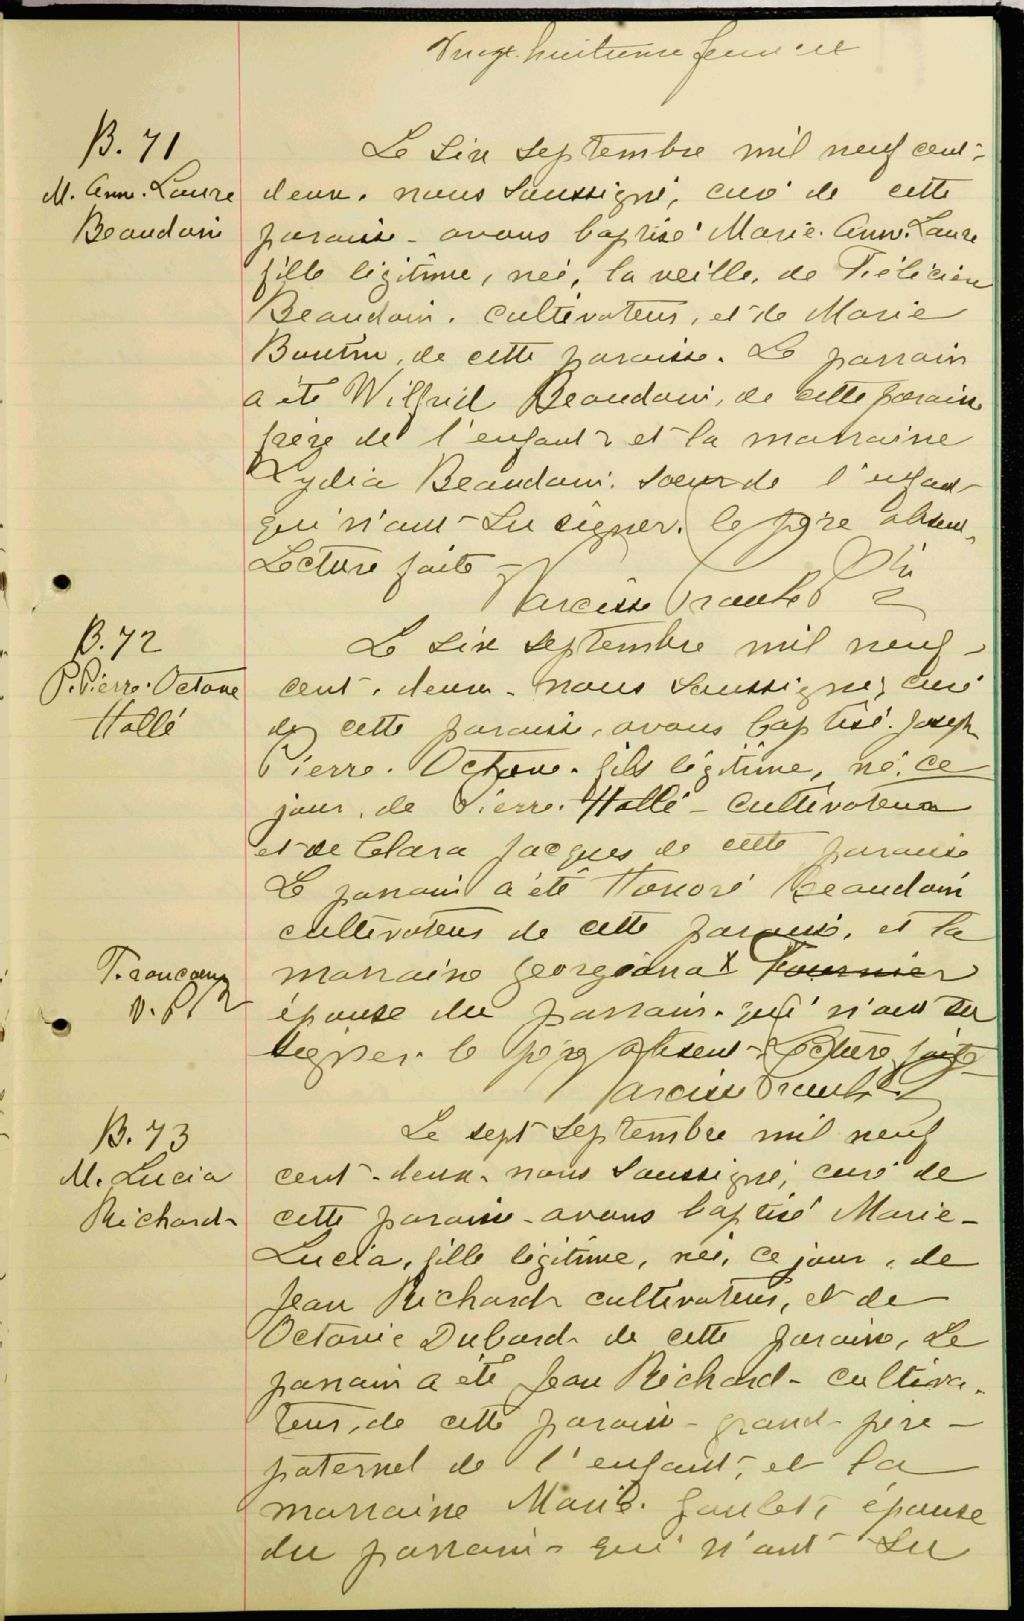 Vingt huitième feuillet
B. 71
M. Ann. Laure
Beaudoin
Le six septembre mil neuf cent-
deux. nous soussigné, curé de cette
paroisse - avons baptisé Marie. Ann. Laure
fille légitime, née, la veille, de Félicien
Beaudoin. cultivateur, et de Marie
Boutin, de cette paroisse. Le parrain
a été Wilfrid Beaudoin, de cette paroisse
frère de l'enfant et la marraine
Lydia Beaudoin. soeur de l'enfant
qui n'ont su signer. le père absent.
Lecture faite -
Narcisse Proulx Ptre
B. 72
P. Pierre. Octave
Hallé
Le six septembre mil neuf -
cent. deux. nous soussigné, curé
de cette paroisse, avons baptisé. Joseph
Pierre. Octave. fils légitime, né. ce
jour, de Pierre. Hallé - cultivateur
et de Clara Jacques de cette paroisse
Le parrain a été Honoré Beaudoin
cultivateur de cette paroisse, et la
marraine Georgiana X Fournier
épouse du parrain. qui n'ont su
signer. le père absent - Lecture faite
Narcisse Proulx
Francoeur
N. P.
B. 73
M. Lucia
Richard
Le sept septembre mil neuf
cent - deux. nous soussigné, curé de
cette paroisse - avons baptisé Marie -
Lucia, fille légitime, née, ce jour, de
Jean Richard cultivateur, et de
Octavie Dubord de cette paroisse, Le
parrain a été Jean Richard - cultiva-
teur, de cette paroisse - grand - père -
paternel de l'enfant, et la
marraine Marie. Goulet, épouse
du parrain - qui n'ont su